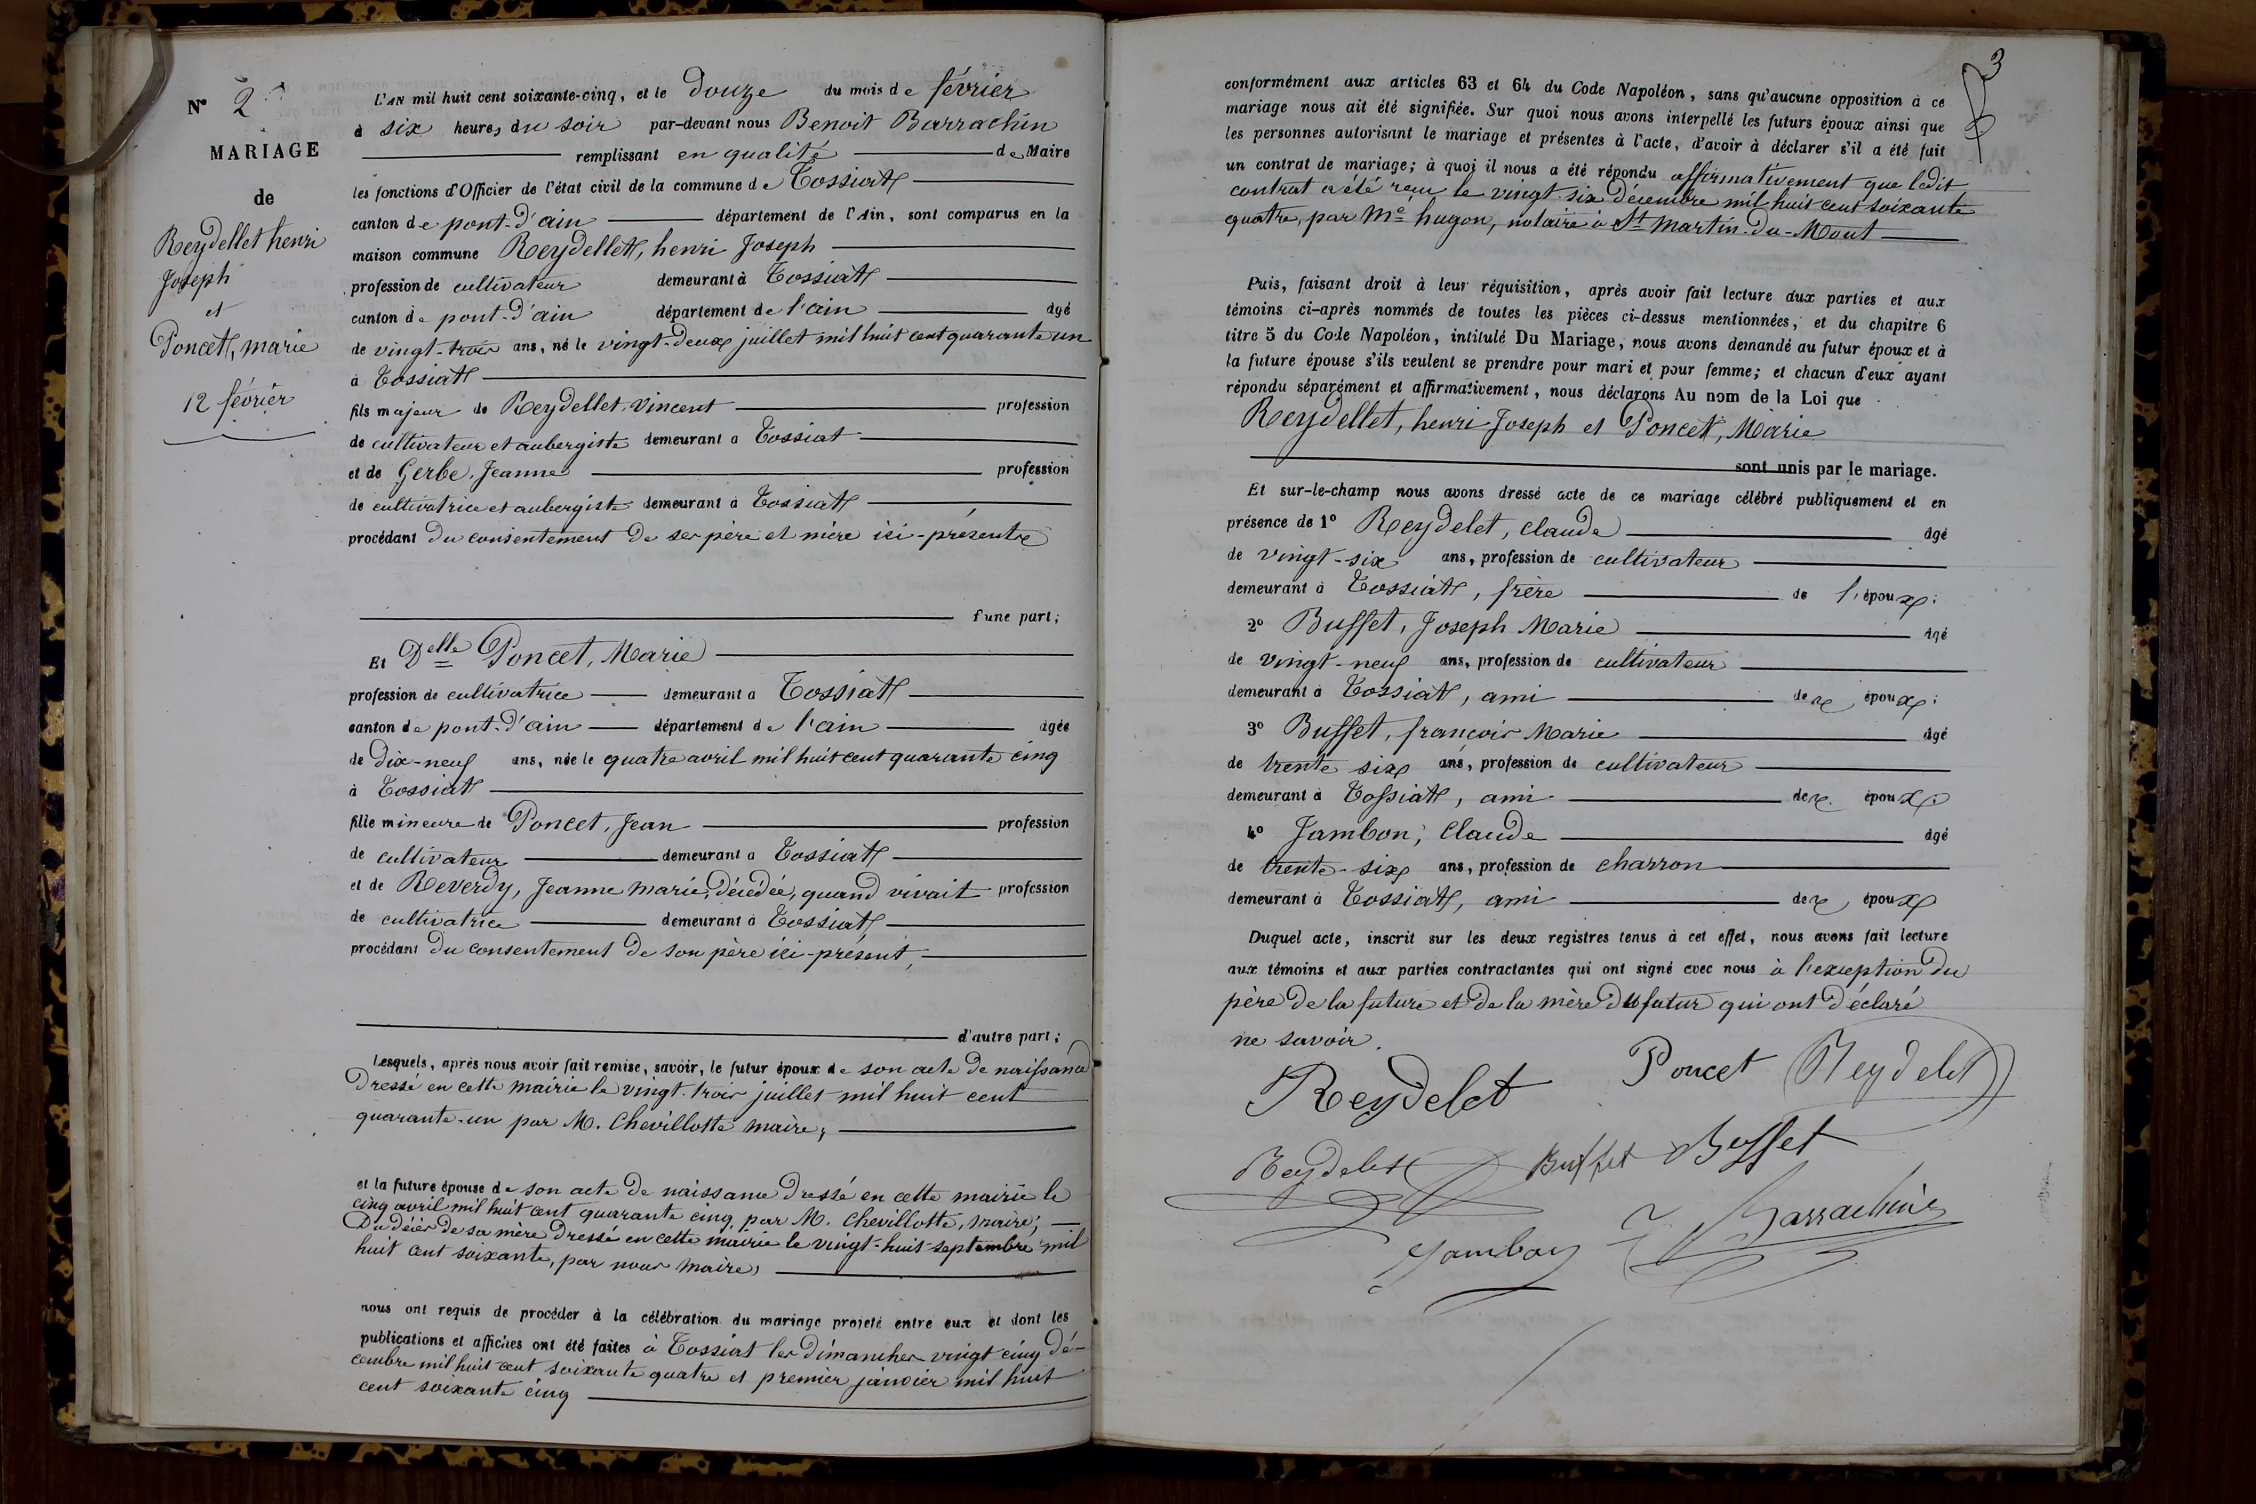 N° 2
MARIAGE
de
Reydellet henri
Joseph
et
Poncet, marie
12 février
L'AN mil huit cent soixante-cinq, et le douze du mois de février
à six heures du soir par-devant nous Benoit Barrachin
remplissant en qualité de Maire
les fonctions d'Officier de l'état civil de la commune de Tossiat
canton de pont-d'ain département de l'Ain, sont comparus en la
maison commune Reydellet, henri Joseph
profession de cultivateur demeurant à Tossiat
canton de pont-d'ain département de l'ain âgé
de vingt-trois ans, né le vingt-deux juillet mil huit cent quarante un
à Tossiat
fils majeur de Reydellet, Vincent profession
de cultivateur et aubergiste demeurant à Tossiat
et de Gerbe, Jeanne profession
de cultivatrice et aubergiste demeurant à Tossiat
procédant du consentement de ses père et mère ici-présents
d'une part;
Et Delle Poncet, Marie
profession de cultivatrice demeurant à Tossiat
canton de pont-d'ain département de l'ain âgée
de dix-neuf ans, née le quatre avril mil huit cent quarante cinq
à Tossiat
fille mineure de Poncet, Jean profession
de cultivateur demeurant à Tossiat
et de Reverdy, Jeanne marie, décédée, quand vivait profession
de cultivatrice demeurant à Tossiat,
procédant du consentement de son père ici-présent,
d'autre part;
Lesquels, après nous avoir fait remise, savoir, le futur époux de son acte de naissance
dressé en cette mairie le vingt-trois juillet mil huit cent
quarante-un par M. Chevillotte maire,
et la future épouse de son acte de naissance dressé en cette mairie le
cinq avril mil huit cent quarante cinq par M. Chevillotte, maire;
Du décès de sa mère dressé en cette mairie le vingt-huit septembre mil
huit cent soixante, par nous maire,
nous ont requis de procéder à la célébration du mariage projeté entre eux et dont les
publications et affiches ont été faites à Tossiat les dimanches vingt cinq dé-
cembre mil huit cent soixante quatre et premier janvier mil huit
cent soixante cinq
3
conformément aux articles 63 et 64 du Code Napoléon, sans qu'aucune opposition à ce
mariage nous ait été signifiée. Sur quoi nous avons interpellé les futurs époux ainsi que
les personnes autorisant le mariage et présentes à l'acte, d'avoir à déclarer s'il a été fait
un contrat de mariage; à quoi il nous a été répondu affirmativement que ledit
contrat a été reçu le vingt-six décembre mil huit cent soixante
quatre, par Me hugon, notaire à St Martin-du-Mont
Puis, faisant droit à leur réquisition, après avoir fait lecture aux parties et aux
témoins ci-après nommés de toutes les pièces ci-dessus mentionnées, et du chapitre 6
titre 5 du Code Napoléon, intitulé Du Mariage, nous avons demandé au futur époux et à
la future épouse s'ils veulent se prendre pour mari et pour femme; et chacun d'eux ayant
répondu séparément et affirmativement, nous déclarons Au nom de la Loi que
Reydellet, henri Joseph et Poncet, Marie
sont unis par le mariage.
Et sur-le-champ nous avons dressé acte de ce mariage célébré publiquement et en
présence de 1° Reydelet, claude âgé
de vingt-six ans, profession de cultivateur
demeurant à Tossiat, frère de l'époux;
2° Buffet, Joseph Marie âgé
de vingt-neuf ans, profession de cultivateur
demeurant à Tossiat, ami des époux;
3° Buffet, françois Marie âgé
de trente six ans, profession de cultivateur
demeurant à Tossiat, ami des époux;
4° Jambon, Claude âgé
de trente-six ans, profession de charron
demeurant à Tossiat, ami des époux
Duquel acte, inscrit sur les deux registres tenus à cet effet, nous avons fait lecture
aux témoins et aux parties contractantes qui ont signé avec nous à l'exception du
père de la future et de la mère du futur qui ont déclaré
ne savoir.
Reydelet Poncet Reydelet
Reydelet Buffet Buffet
Jambon Barrachin